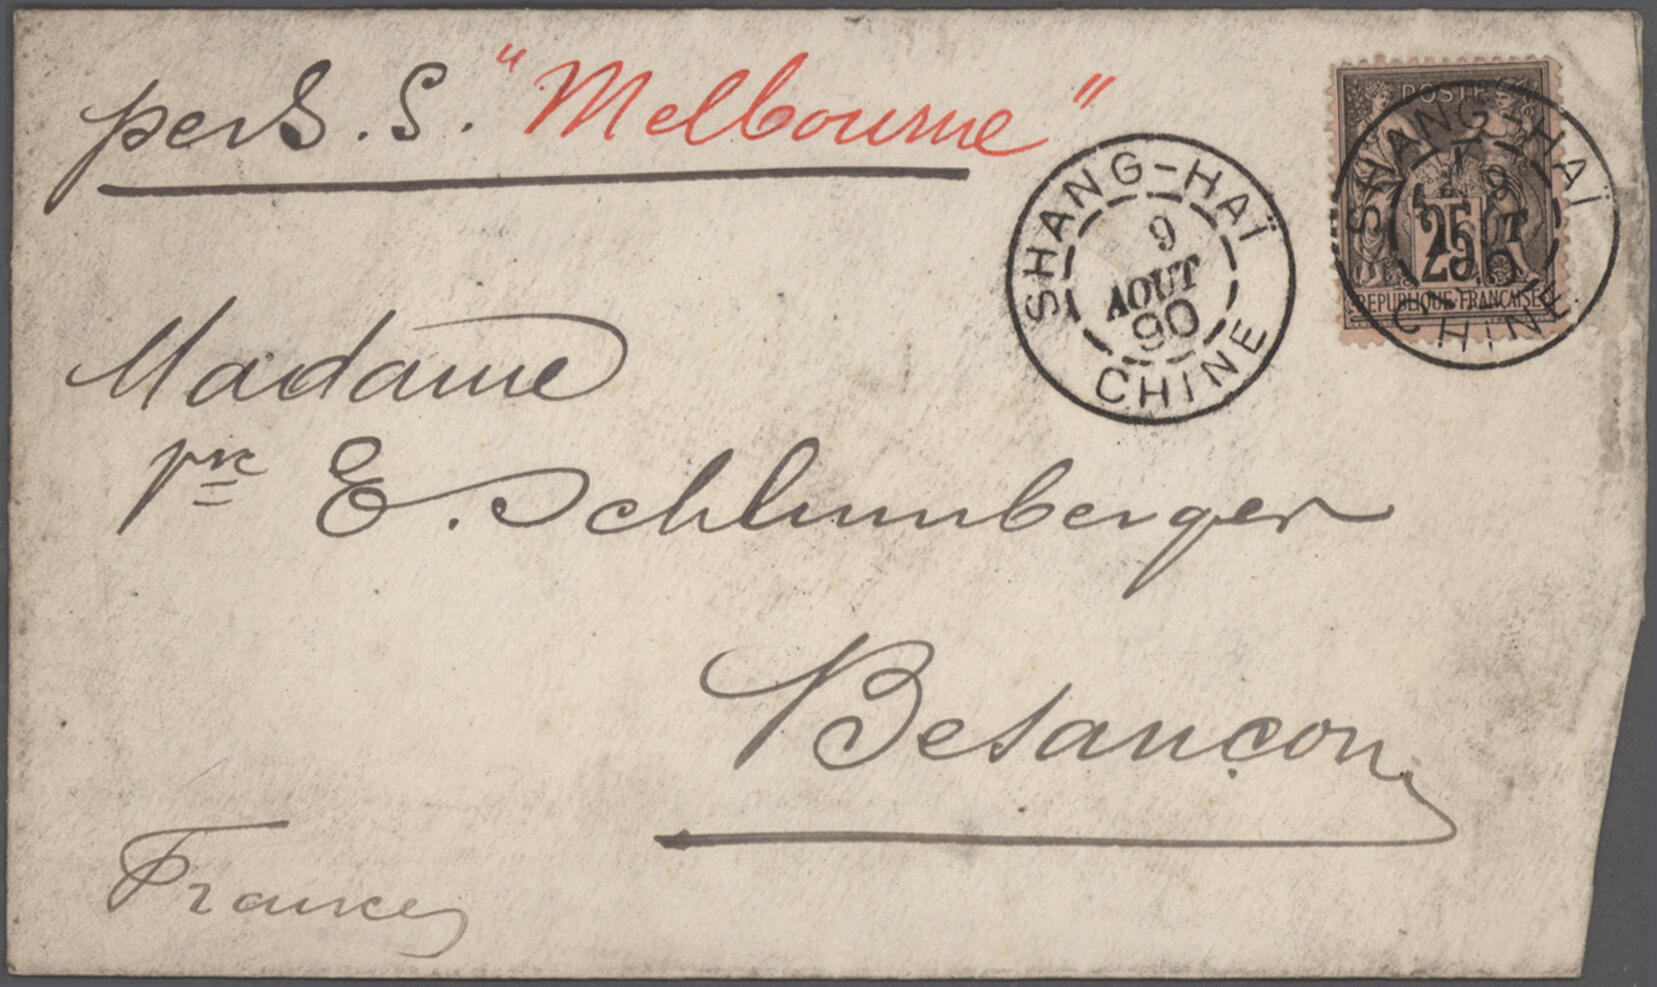 per S. S. "Melbourne"
SHANG-HAÏ
9
AOUT
90
CHINE
POSTES
25
REPUBLIQUE FRANCAISE
SHANG-HAÏ
CHINE
Madame
pre E. Schlumberger
Besançon
France